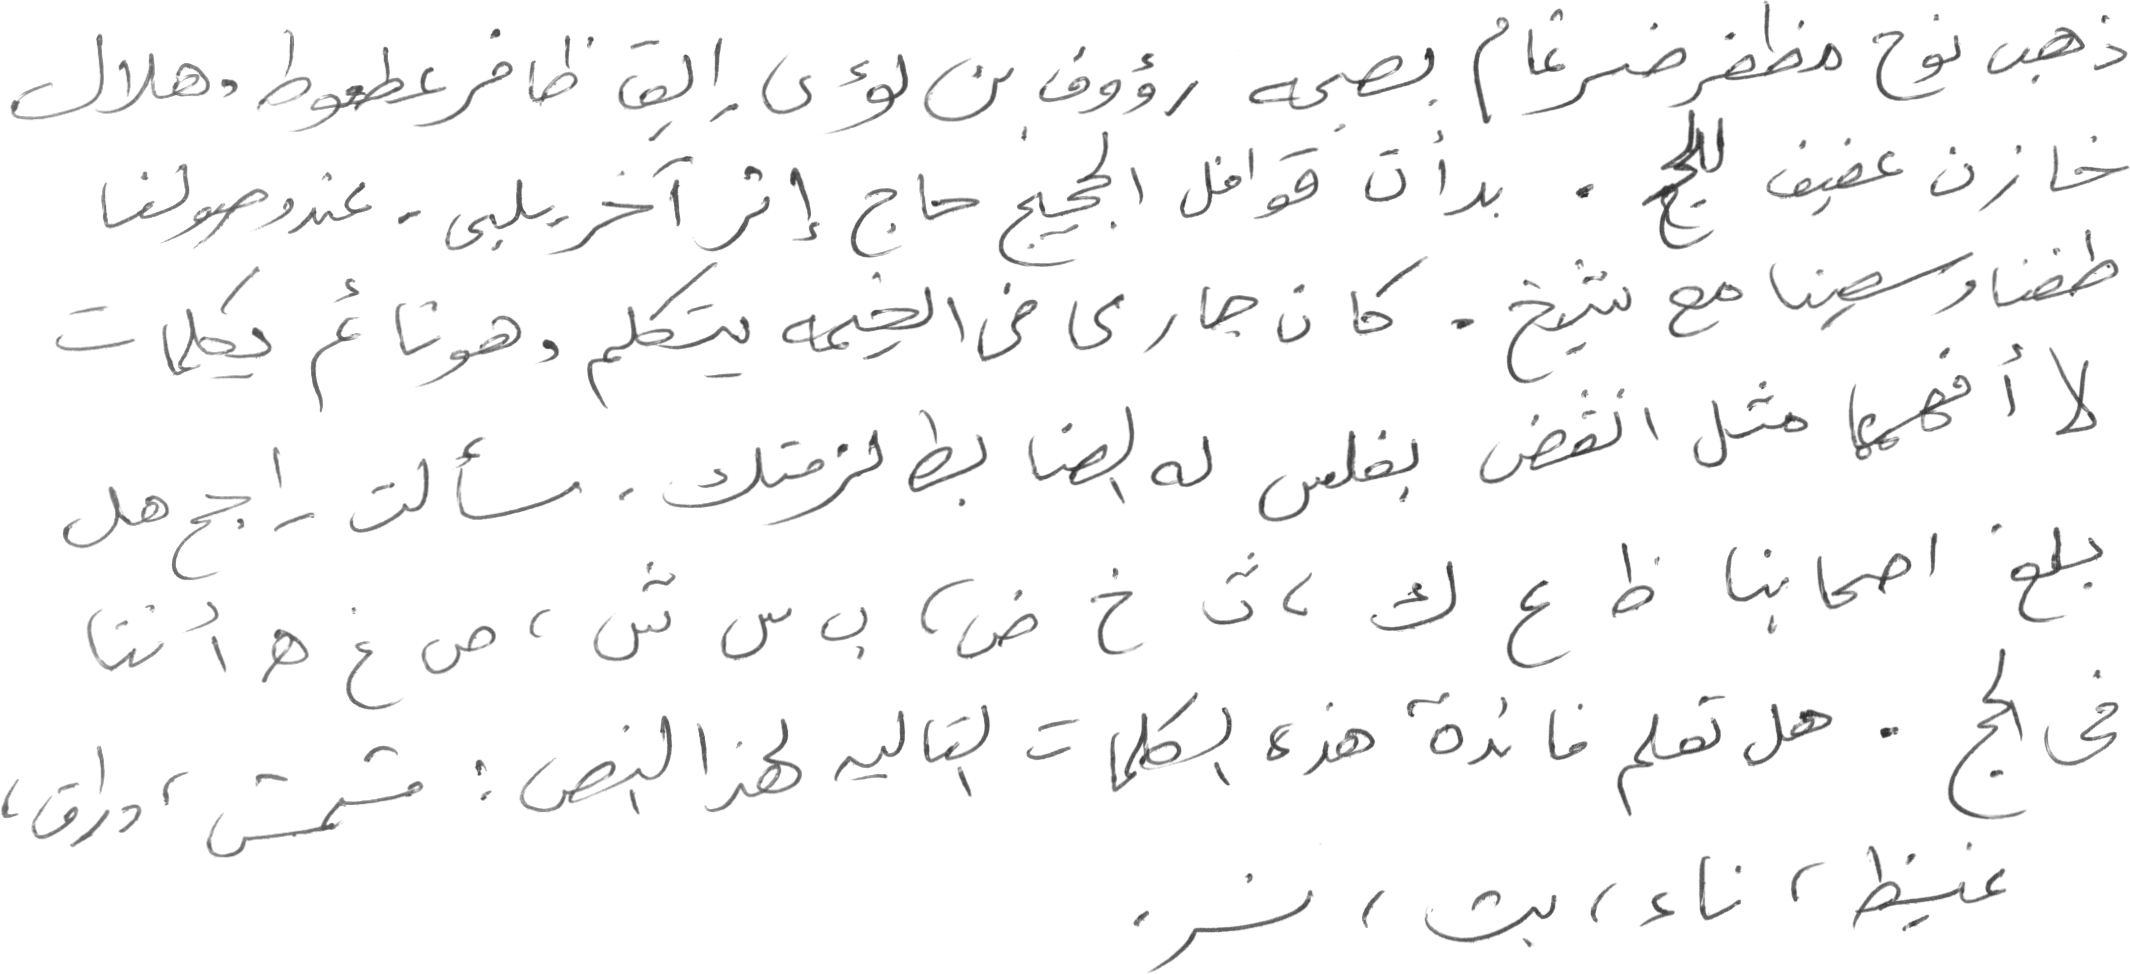 ذهب نوح مظفر ضرغام بصحبه رؤوف بن لؤى رايق ظافر عطعوط وهلال
خازن عفيف للحج . بدأت قوافل الحجيج حاج إثر آخر يلبى . عند وصولنا
طفنا وسعينا مع شيخ . كان جارى فى الخيمه يتكلم وهو نائم بكلمات
لا أفهمها مثل انقض بفلس له الضابط لزمتك . سألت راجح هل
بلغ اصحابنا ظ ع ك ، ث خ ض ، ب س ش ، ص غ ه أننا
فى الحج . هل تعلم فائدة هذه الكلمات التاليه لهذا النص : مشمش ، دراق ،
غيظ ، ناء ، بت ، نسر .